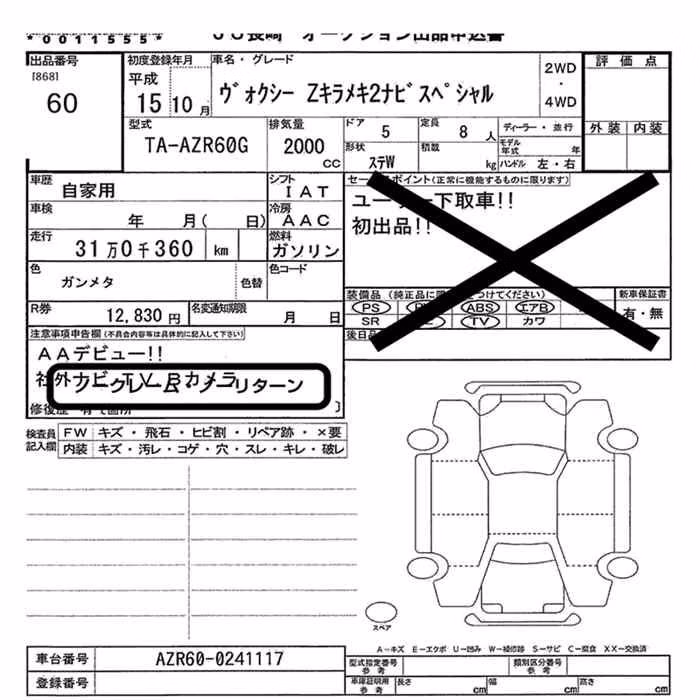 *0011555* JU長崎 オークション出品申込書
出品番号 [868] 60
初度登録年月 平成 15年10月
車名・グレード ヴォクシー Zキラメキ2ナビスペシャル
2WD ・ 4WD
評価点
外装 内装
型式 TA-AZR60G
排気量 2000 CC
ドア 5 定員 8人 ディーラー・並行
形状 ステW 積載 kg モデル年式 年 ハンドル 左・右
車歴 自家用
シフト IAT
車検 年 月( 日)
冷房 AAC
走行 31万0千360 km
燃料 ガソリン
色 ガンメタ 色替 色コード
R券 12,830円 名変通知期限 月 日
セールスポイント(正常に機能するものに限ります)
ユーザー下取車!!
初出品!!
装備品 (純正品に限
つけてください) 新車保証書
PS ABS エアB
SR TV カワ
有・無
後日品
注意事項申告欄 (不具合内容等は具体的に記入して下さい)
AAデビュー!!
社外ナビ TV Bカメラ
ノークレーム・ノーリターン
修復歴 有
検査員記入欄 FW キズ・飛石・ヒビ割・リペア跡・×要
内装 キズ・汚レ・コゲ・穴・スレ・キレ・破レ
スペア
A－キズ E－エクボ U－凹み W－補修跡 S－サビ C－腐食 XX－交換済
車台番号 AZR60-0241117
登録番号
型式指定番号 参考 類別区分番号 参考
車庫証明用 参考 長さ cm 幅 cm 高さ cm